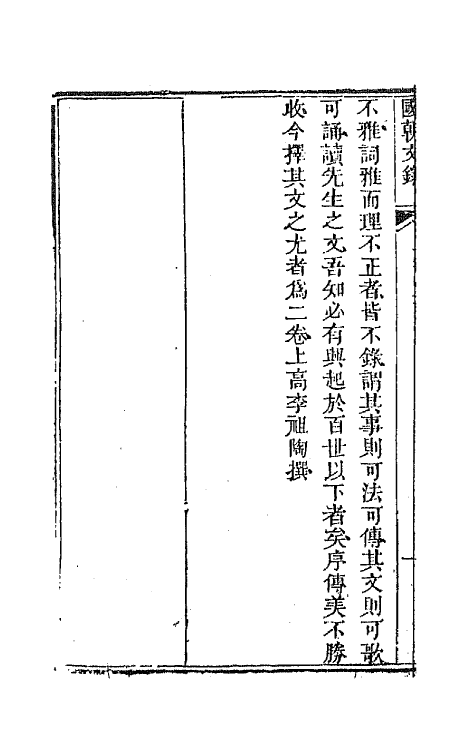 國朝文錄
不雅詞雅而理不正者皆不錄謂其事則可法可傳其文則可歌
可誦讀先生之文吾知必有興起於百世以下者矣序傳美不勝
收今擇其文之尤者為二卷上高李祖陶撰
一